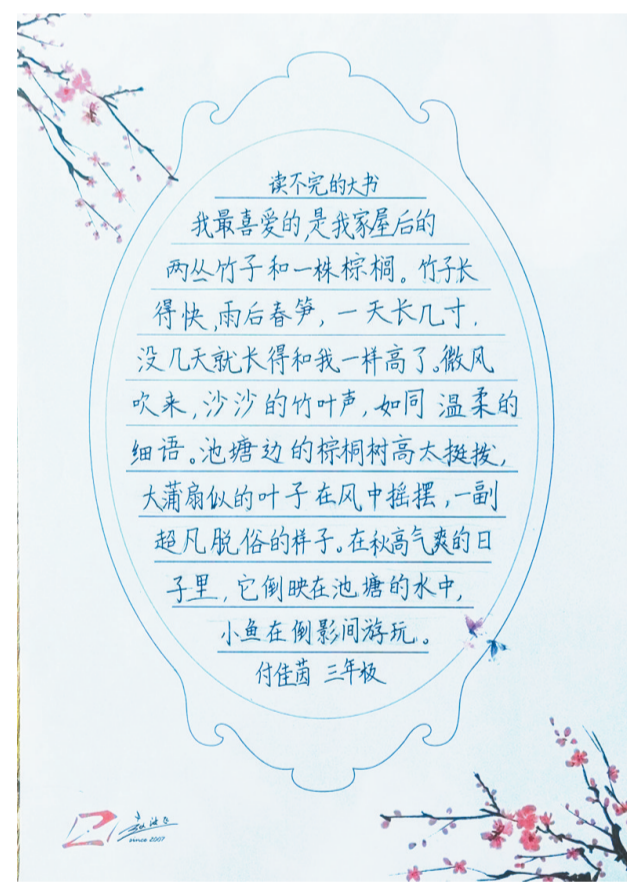 读不完的大书
我最喜爱的,是我家屋后的
两丛竹子和一株棕榈。竹子长
得快,雨后春笋,一天长几寸,
没几天就长得和我一样高了。微风
吹来,沙沙的竹叶声,如同温柔的
细语。池塘边的棕榈树高大挺拨,
大蒲扇似的叶子在风中摇摆,一副
超凡脱俗的样子。在秋高气爽的日
子里,它倒映在池塘的水中,
小鱼在倒影间游玩。
付佳茵 三年级
since 2007